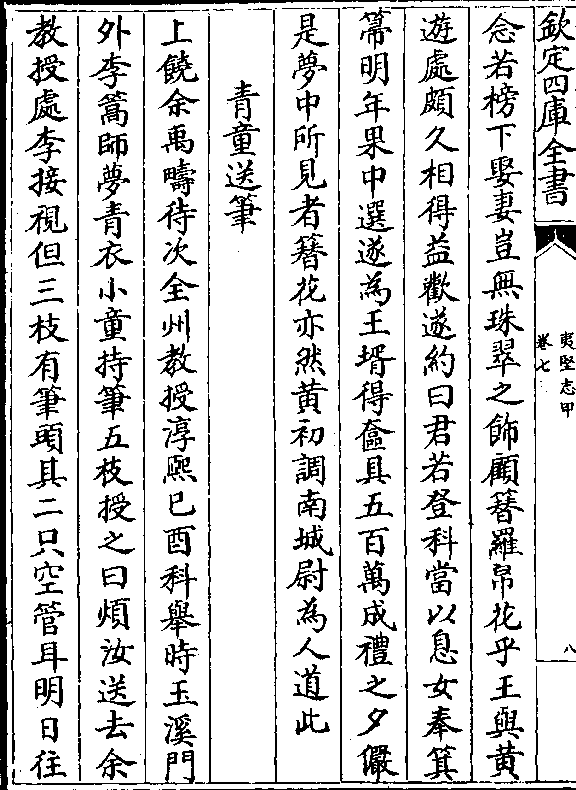 欽定四庫全書
夷堅志甲
卷七
八
念若榜下娶妻豈無珠翠之飾顧簪羅帛花乎王與黃
遊處頗久相得益歡遂約曰君若登科當以息女奉箕
箒明年果中選遂為王壻得奩具五百萬成禮之夕儼
是夢中所見者簪花亦然黃初調南城尉為人道此
青童送筆
上饒余禹疇待次全州教授淳熙己酉科舉時玉溪門
外李篙師夢青衣小童持筆五枝授之曰煩汝送去余
教授處李接視但三枝有筆頭其二只空管耳明日往